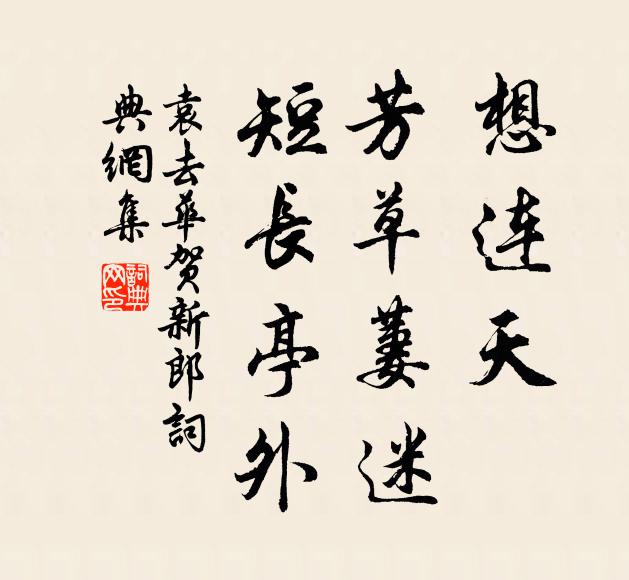 想连天
芳草萋迷
短長亭外
袁去華賀新郎詞
典網集
詞典
网印